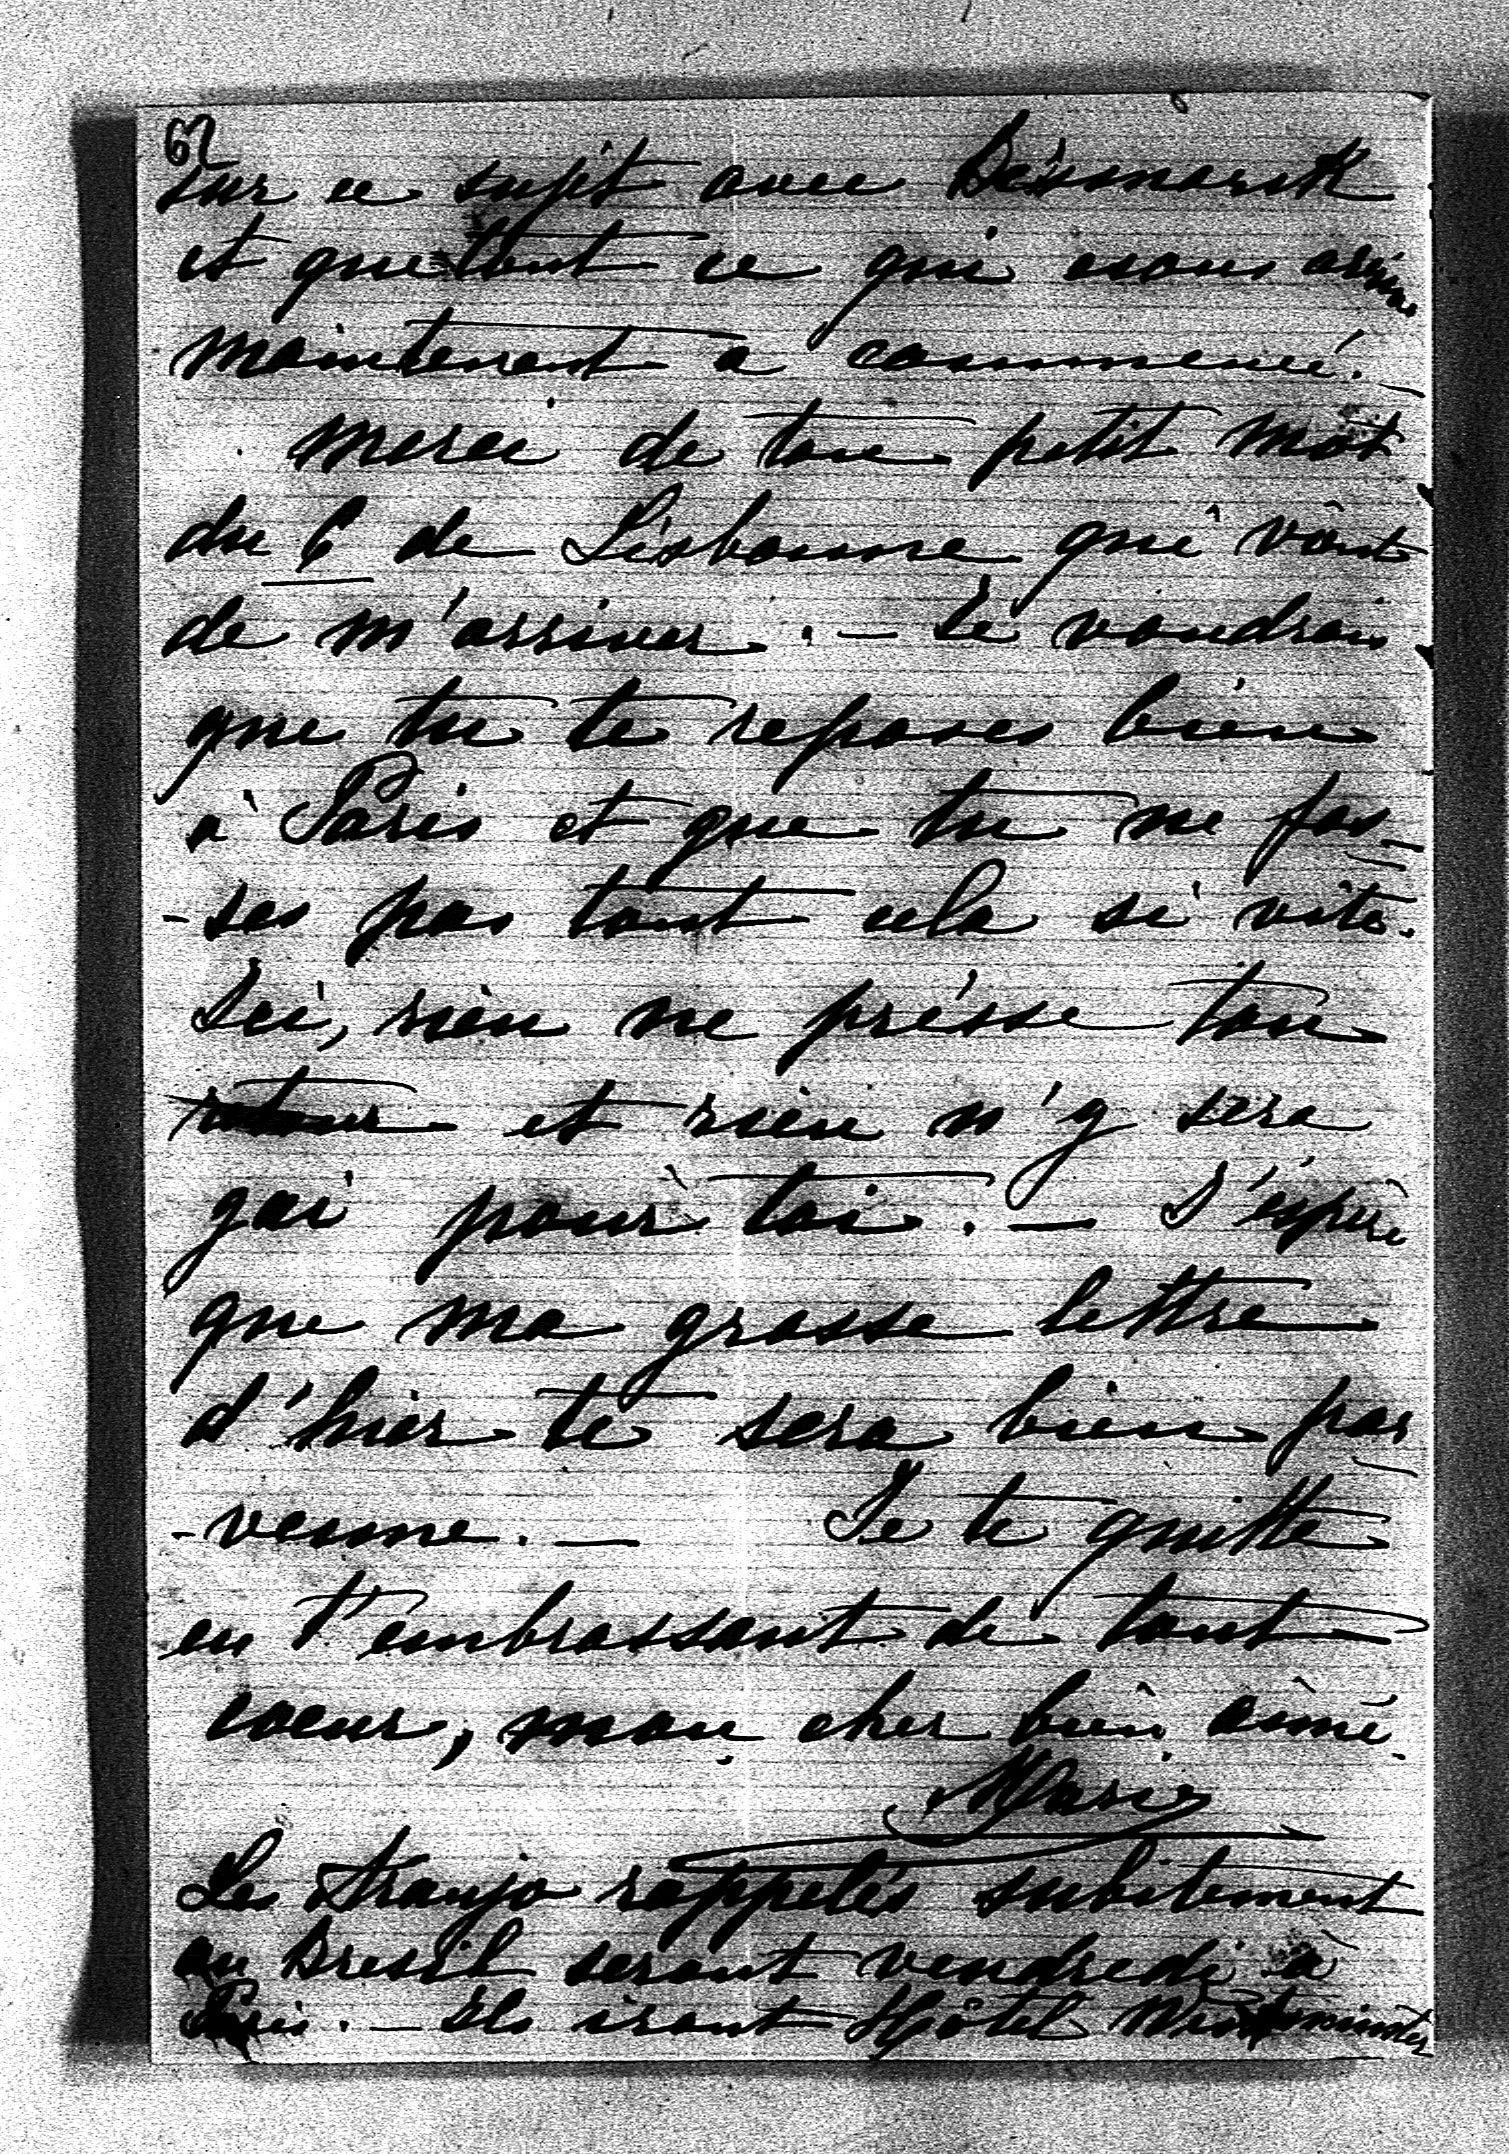 62
sur ce sujet avec Bismarck
et que tout ce qui nous arrive
maintenant a commencé.
Merci de ton petit mot
du 6 de Lisbonne qui vient
de m'arriver. — Je voudrais
que tu te reposes bien
à Paris et que tu ne fas-
-ses pas tout cela si vite.
Ici, rien ne présse ton
retour et rien n'y sera
gai pour toi. — J'espère
que ma grosse lettre
d'hier te sera bien par
-venue. — Je te quitte
en t'embrassant de tout
coeur, mon cher bien aimé.
Marie
Les Araujo rappelés subitement
au Bresil seront vendredi à
Paris. — Ils iront Hôtel Westminster